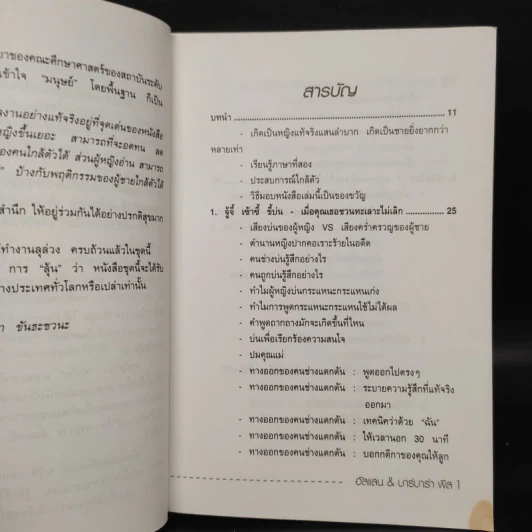 ยาของคณะศึกษาศาสตร์ของสถาบันระดับ
เข้าใจ "มนุษย์" โดยพื้นฐาน ก็เป็น
ลงานอย่างแท้จริงอยู่ที่จุดเด่นของหนังสือ
หญิงขึ้นเยอะ สามารถที่จะอดทน ลด
องคนใกล้ตัวได้ ส่วนผู้หญิงอ่าน สามารถ
" บ้างกับพฤติกรรมของผู้ชายใกล้ตัวได้
สำนึก ให้อยู่ร่วมกันได้อย่างปรกติสุขมาก
ทำงานลุล่วง ครบถ้วนแล้วในชุดนี้
การ "ลุ้น" ว่า หนังสือชุดนี้จะได้รับ
างประเทศทั่วโลกหรือเปล่าเท่านั้น
า ขันธะชวนะ
สารบัญ
บทนำ 11
- เกิดเป็นหญิงแท้จริงแสนลำบาก เกิดเป็นชายยิ่งยากกว่า
หลายเท่า
- เรียนรู้ภาษาที่สอง
- ประสบการณ์ใกล้ตัว
- วิธีมอบหนังสือเล่มนี้เป็นของขวัญ
1. จู้จี้ เซ้าซี้ ขี้บ่น - เมื่อคุณเธอชวนทะเลาะไม่เลิก 25
- เสียงบ่นของผู้หญิง VS เสียงคร่ำครวญของผู้ชาย
- ตำนานหญิงปากคอเราะร้ายในอดีต
- คนช่างบ่นรู้สึกอย่างไร
- คนถูกบ่นรู้สึกอย่างไร
- ทำไมผู้หญิงบ่นกระแหนะกระแหนเก่ง
- ทำไมการพูดกระแหนะกระแหนใช้ไม่ได้ผล
- คำพูดถากถางมักจะเกิดขึ้นที่ไหน
- บ่นเพื่อเรียกร้องความสนใจ
- ปมคุณแม่
- ทางออกของคนช่างแดกดัน : พูดออกไปตรงๆ
- ทางออกของคนช่างแดกดัน : ระบายความรู้สึกที่แท้จริง
ออกมา
- ทางออกของคนช่างแดกดัน : เทคนิคว่าด้วย "ฉัน"
- ทางออกของคนช่างแดกดัน : ให้เวลานอก 30 นาที
- ทางออกของคนช่างแดกดัน : บอกกติกาของคุณให้ลูก
อัลแลน & บาร์บาร่า พีส 1